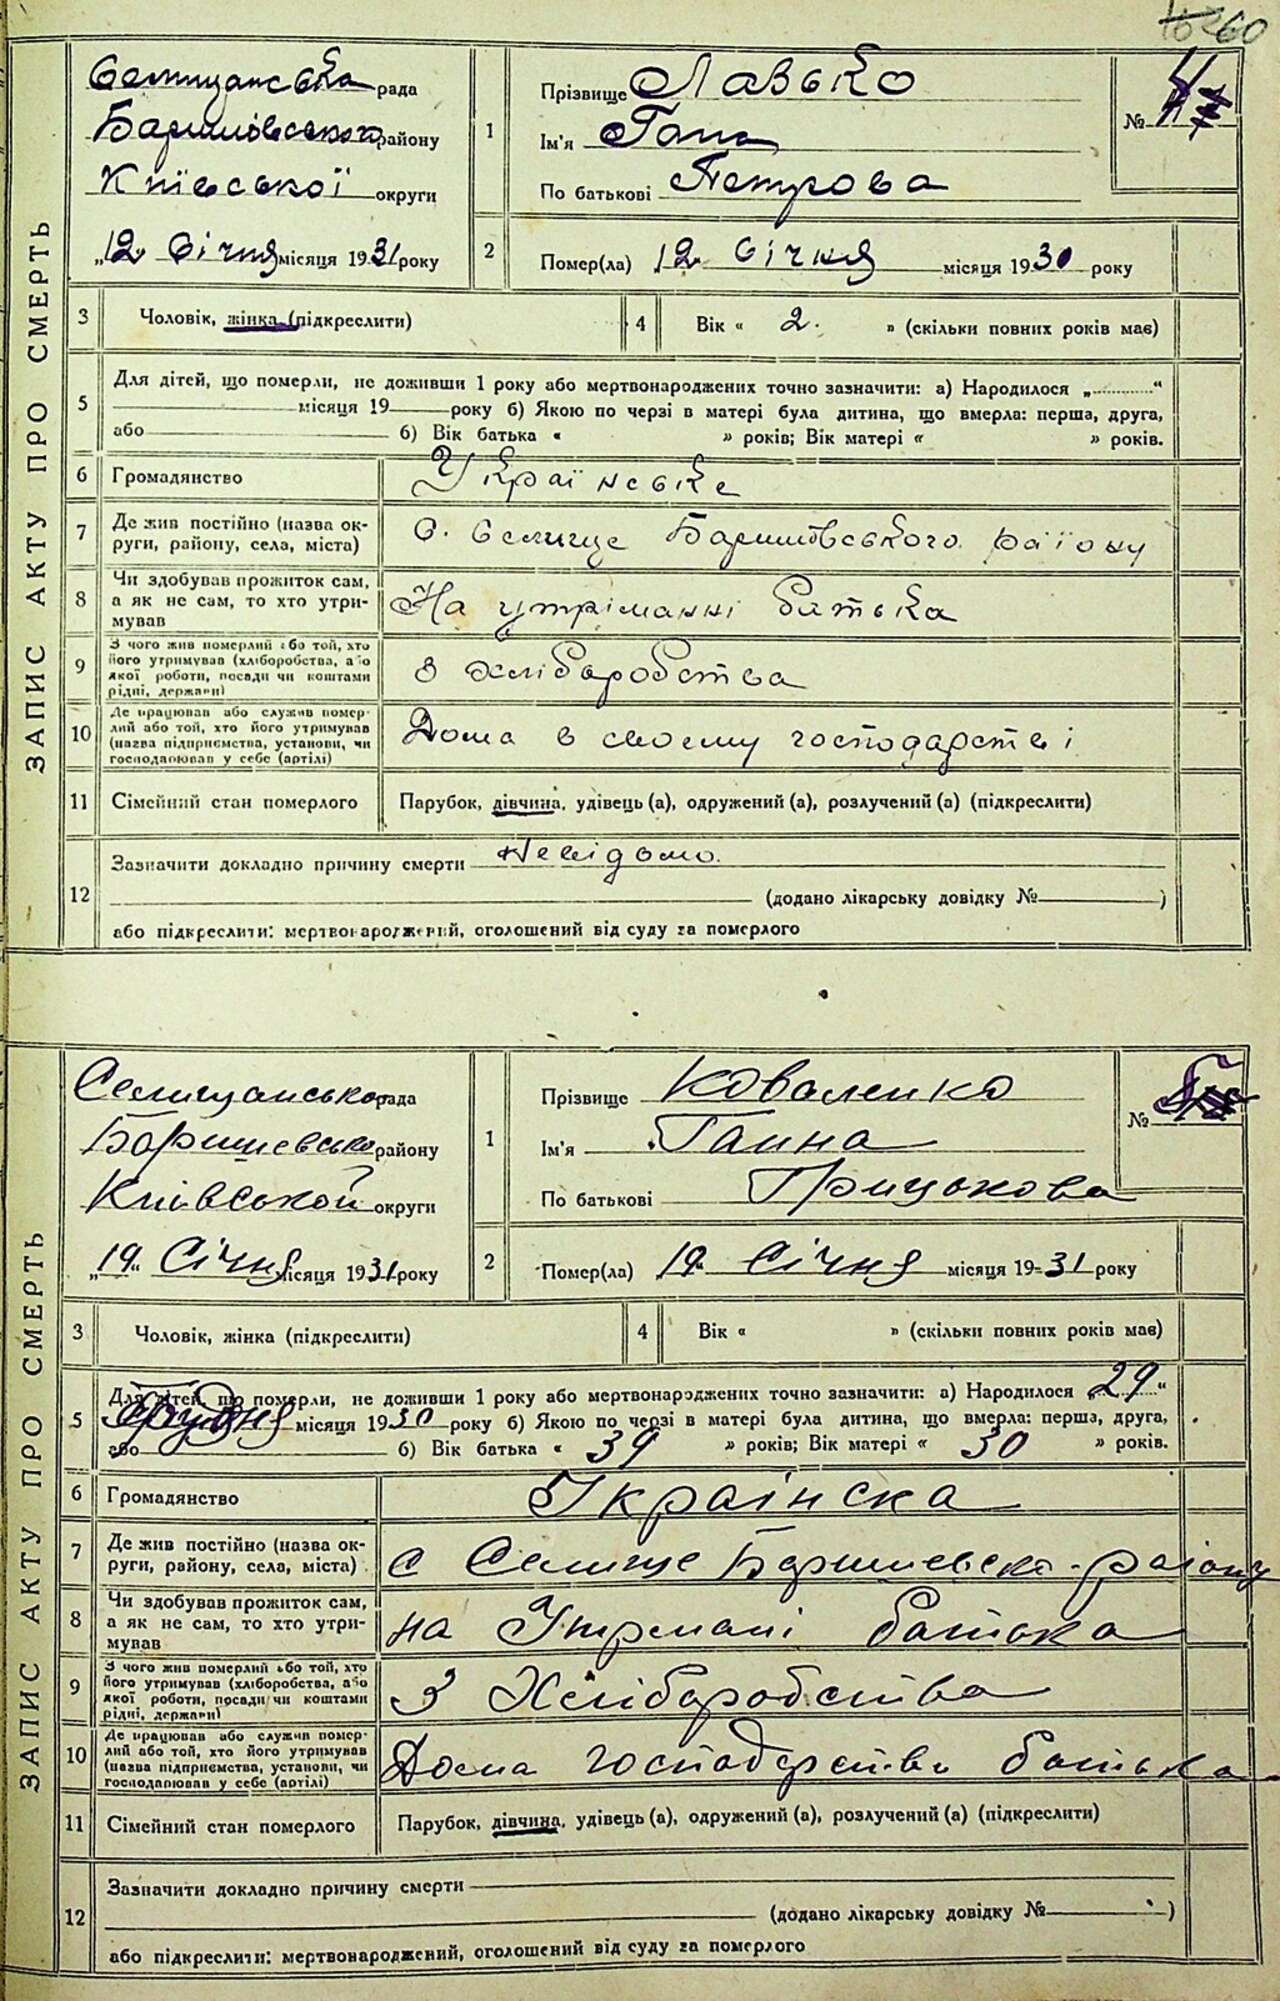 60
ЗАПИС АКТУ ПРО СМЕРТЬ
Селищанська рада
Баришівського району
Київської округи
„12“ Січня місяця 1931 року
1
Прізвище Лавько
Ім'я Гана
По батькові Петрова
№ 4
2
Помер(ла) „12“ Січня місяця 1930 року
3
Чоловік, жінка (підкреслити)
4
Вік « 2. » (скільки повних років має)
5
Для дітей, що померли, не доживши 1 року або мертвонароджених точно зазначити: а) Народилося „ “
місяця 19 року б) Якою по черзі в матері була дитина, що вмерла: перша, друга,
або б) Вік батька « » років; Вік матері « » років.
6
Громадянство Українське
7
Де жив постійно (назва ок-
руги, району, села, міста)
с. Селище Баришівського раіону
8
Чи здобував прожиток сам,
а як не сам, то хто утри-
мував
На утріманні батька
9
З чого жив померлий або той, хто
його утримував (хліборобства, або
якої роботи, посади чи коштами
рідні, держави)
з хліборобства
10
Де працював або служив помер-
лий або той, хто його утримував
(назва підприємства, установи, чи
господарював у себе (артілі)
Дома в своєму господарстві
11
Сімейний стан померлого
Парубок, дівчина, удівець (а), одружений (а), розлучений (а) (підкреслити)
12
Зазначити докладно причину смерти Невідомо.
(додано лікарську довідку № )
або підкреслити: мертвонароджений, оголошений від суду за померлого
ЗАПИС АКТУ ПРО СМЕРТЬ
Селищанська рада
Баришевсько району
Киівськой округи
„19“ Січня місяця 1931 року
1
Прізвище Коваленко
Ім'я Ганна
По батькові Грицькова
№
2
Помер(ла) „19“ Січня місяця 1931 року
3
Чоловік, жінка (підкреслити)
4
Вік « » (скільки повних років має)
5
Для дітей, що померли, не доживши 1 року або мертвонароджених точно зазначити: а) Народилося „29“
Грудня місяця 1930 року б) Якою по черзі в матері була дитина, що вмерла: перша, друга,
або б) Вік батька « 39 » років; Вік матері « 30 » років.
6
Громадянство Украінска
7
Де жив постійно (назва ок-
руги, району, села, міста)
с Селище Баришевско-раіону
8
Чи здобував прожиток сам,
а як не сам, то хто утри-
мував
на Утремані батька
9
З чого жив померлий або той, хто
його утримував (хліборобства, або
якої роботи, посади чи коштами
рідні, держави)
З Хліборобства
10
Де працював або служив помер-
лий або той, хто його утримував
(назва підприємства, установи, чи
господарював у себе (артілі)
Дома господарстві батька
11
Сімейний стан померлого
Парубок, дівчина, удівець (а), одружений (а), розлучений (а) (підкреслити)
12
Зазначити докладно причину смерти
(додано лікарську довідку № )
або підкреслити: мертвонароджений, оголошений від суду за померлого